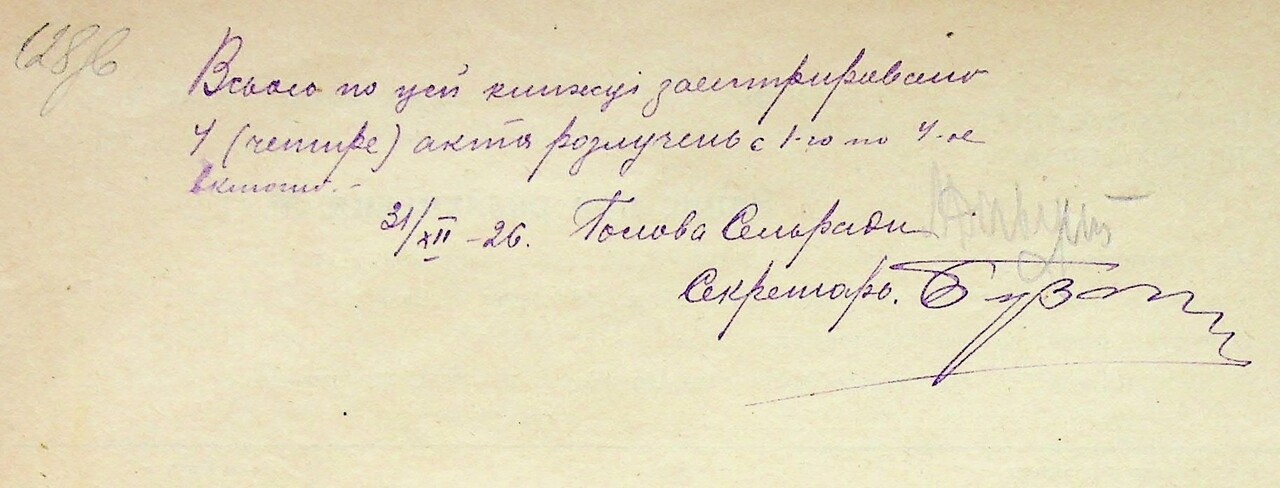 128
Всього по цей книжці заєстрировано
4 (четире) акта розлучень с 1-го по 4-е
включно.-
31/XII-26. Голова Сельради
Секретарь.